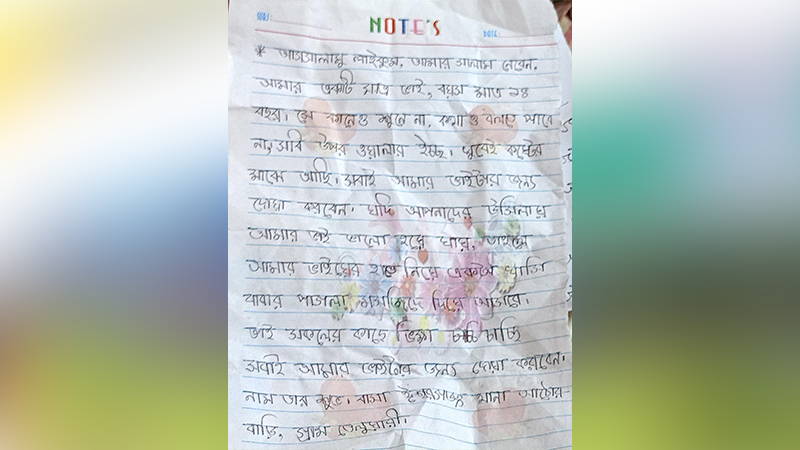 SUBJ:
NOTE'S
DATE:
* আসসালামু লাইকুম, আমার সালাম নেবেন,
আমার একটি মাত্র ভাই, বয়স মাত্র ১৪
বছর। সে কানেও শুনে না, কথা ও বলতে পারে
না, সবি উপর ওয়ালার ইচ্ছা। খুবই কষ্টের
মাঝে আছি। সবাই আমার ভাইটার জন্য
দোয়া করবেন। যদি আপনাদের উসিলায়
আমার ভাই ভালো হয়ে যায়, তাহলে
আমার ভাইয়ের হাতে নিয়ে একশৈ
বাবার পাগলা মসজিদে দিয়ে আসবে।
ভাই সকলের কাছে ভিক্ষা চাচ্ছি
সবাই আমার ভাইটার জন্য দোয়া করবেন।
নাম তার শুভ। বাসা ঈশ্বরগঞ্জ থানা আঠার
বাড়ি, গ্রাম তেলুয়ারী।